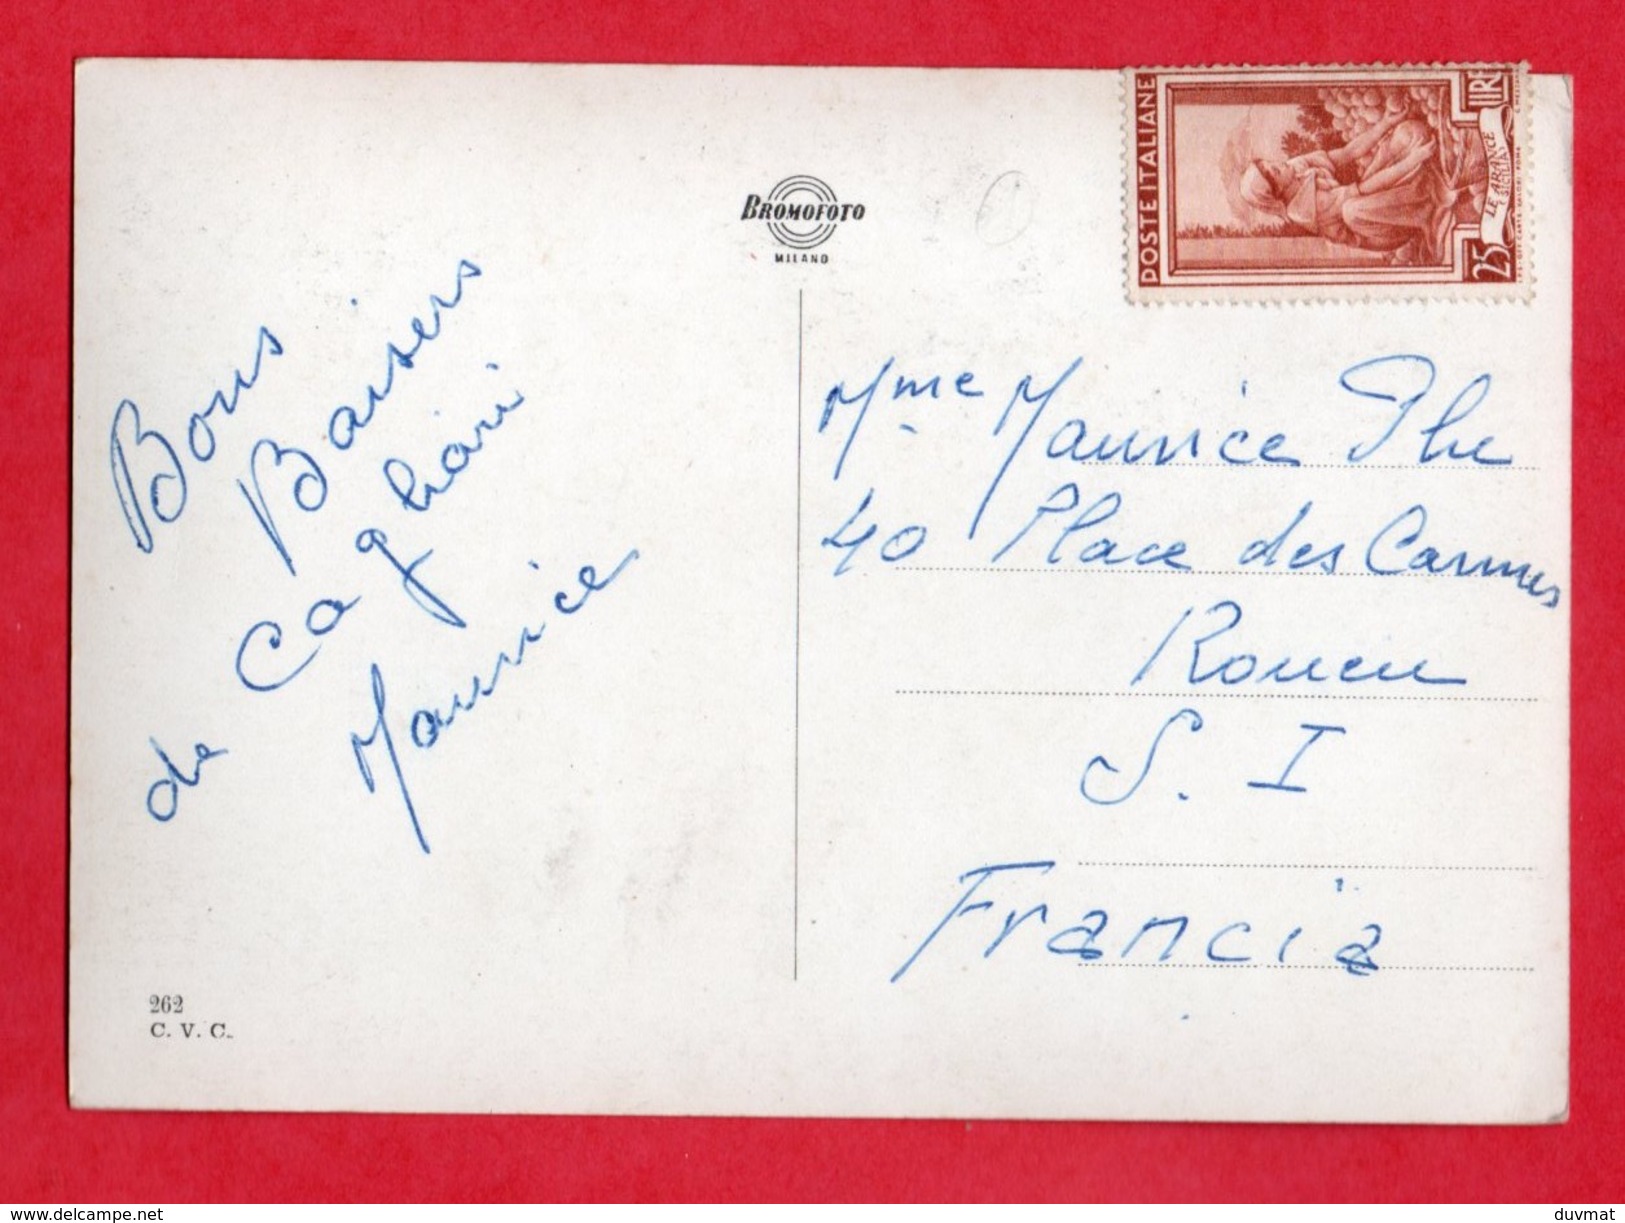 POSTE ITALIANE
LIRE
25
LE ARANCE
BROMOFOTO
MILANO
Bons
Baisers
de Cagliari
Maurice
Mme Maurice
40 Place des Carmes
Rouen
S. I
Francia
262
C. V. C.
www.delcampe.net
duvmat